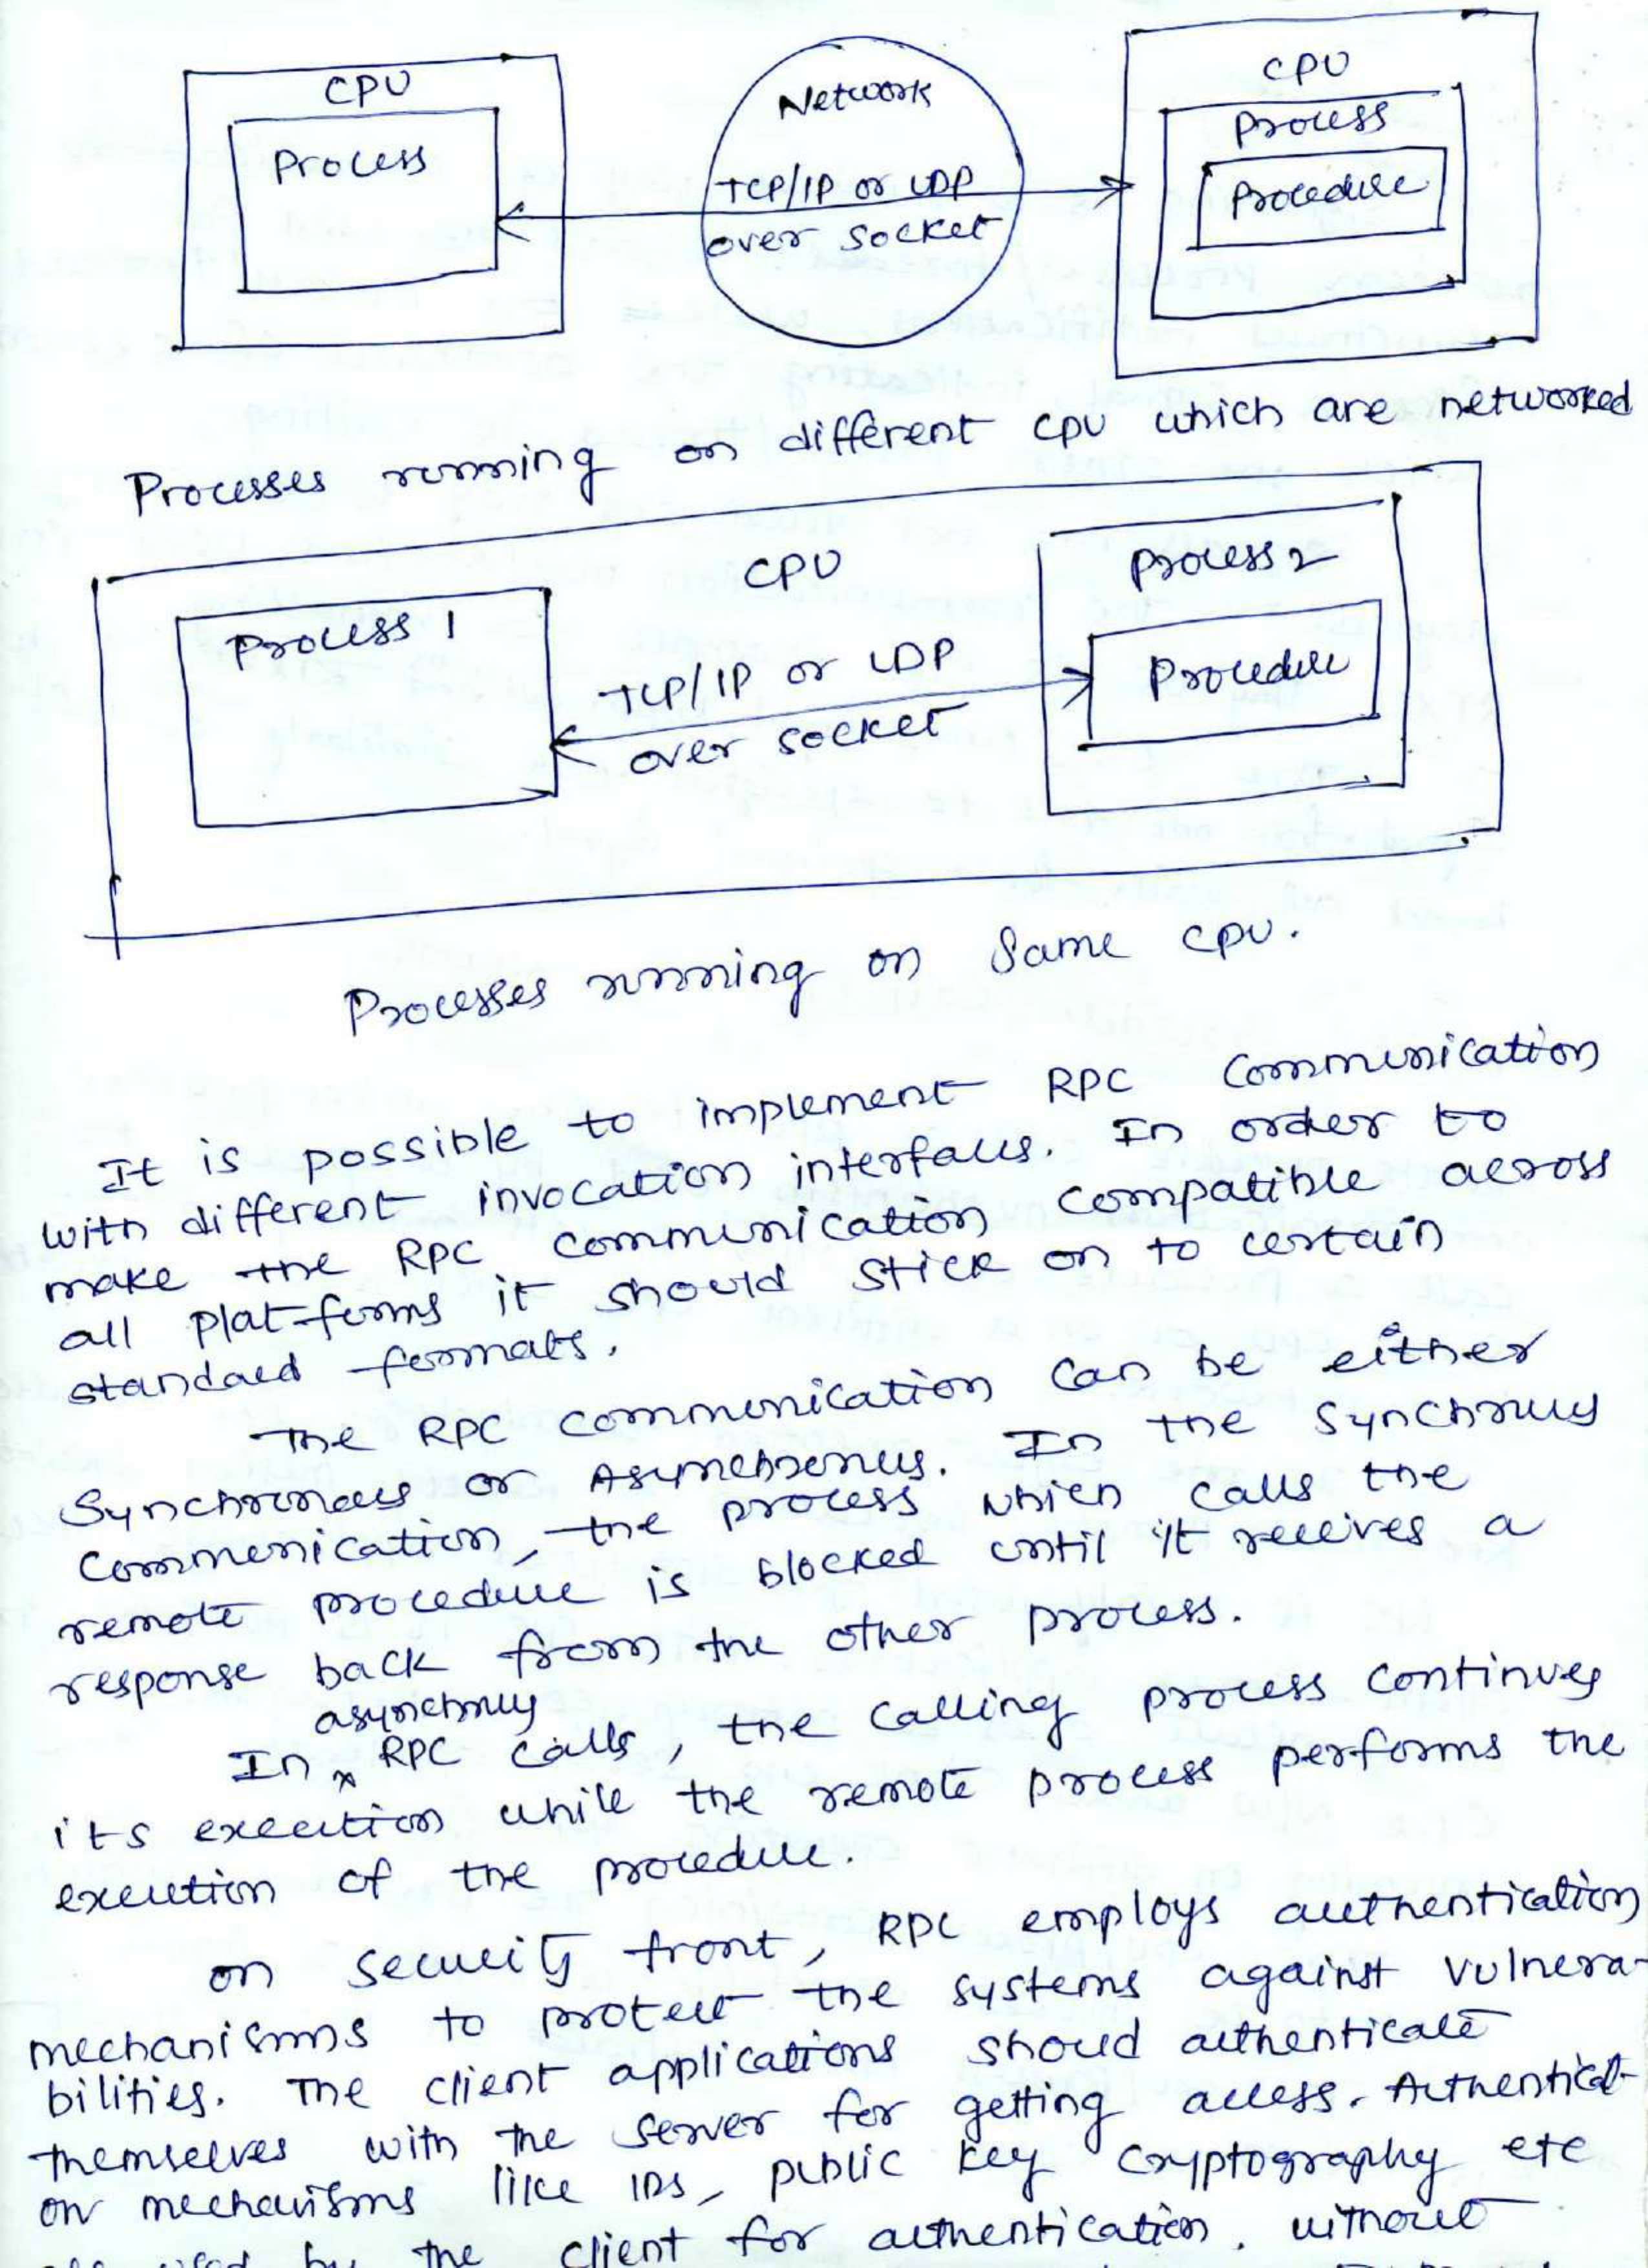 CPU
Process
Network
TCP/IP or UDP
over socket
CPU
process
Procedure
Processes running on different CPU which are networked
CPU
Process 1
TCP/IP or UDP
over socket
process 2
Procedure
Processes running on Same CPU.
It is possible to implement RPC Communication
with different invocation interfaces. In order to
make the RPC communication compatible across
all platforms it should stick on to certain
standard formats.
The RPC communication can be either
Synchronous or Asynchronous. In the Synchronus
Communication, the process which calls the
remote procedure is blocked until it receives a
response back from the other process.
asynchrony
In x RPC calls, the calling process continues
its execution while the remote process performs the
execution of the procedure.
on security front, RPC employs authentication
mechanisms to protect the systems against vulnera-
bilities. The client applications should authenticate
themselves with the server for getting access. Authenticat-
on mechanisms like IDs, public key cryptography etc
by the client for authentication. without